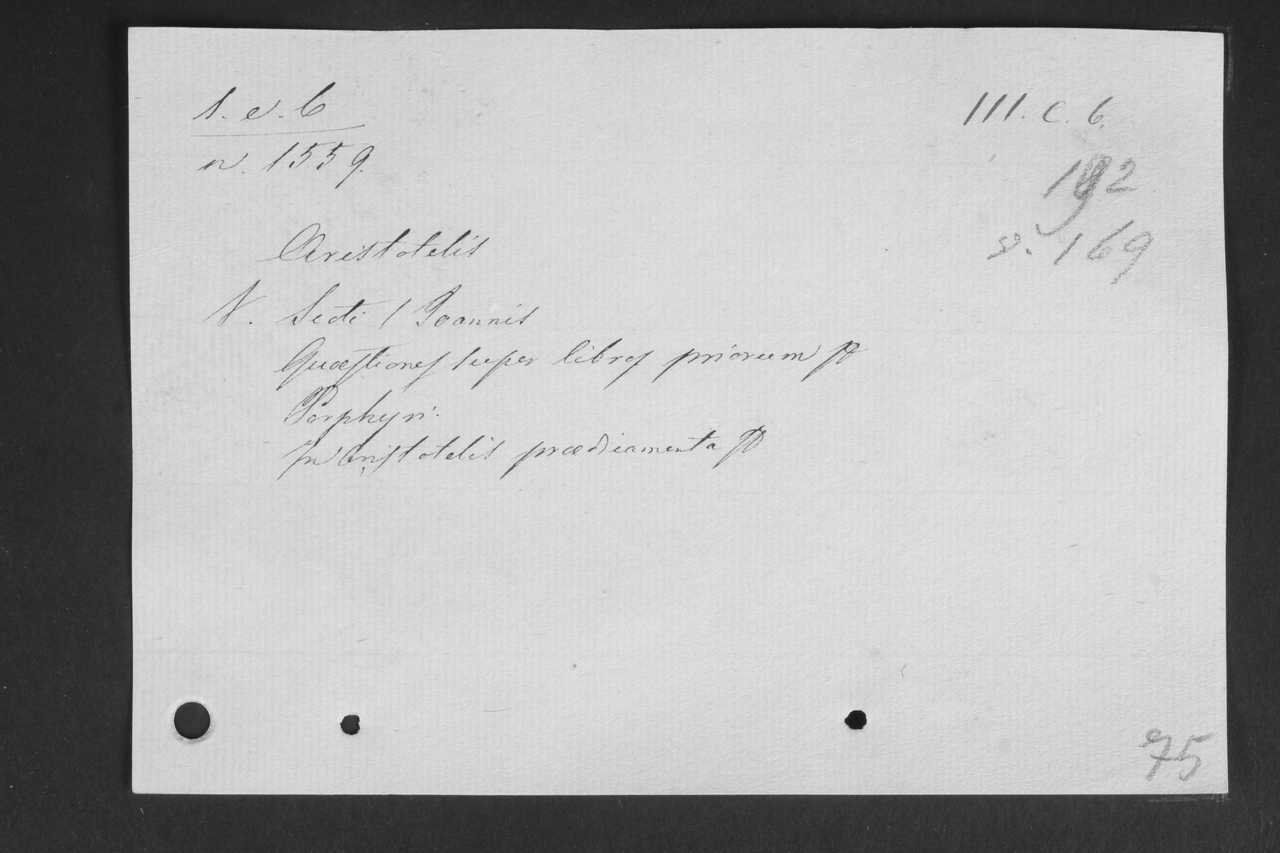 1. e. C
n. 1559.
III. c. 6.
192
v. 169
Aristotelis
V. Scoti / Joannis
Quæstiones super libros priorum
Porphyri.
In Aristotelis prædicamenta
75